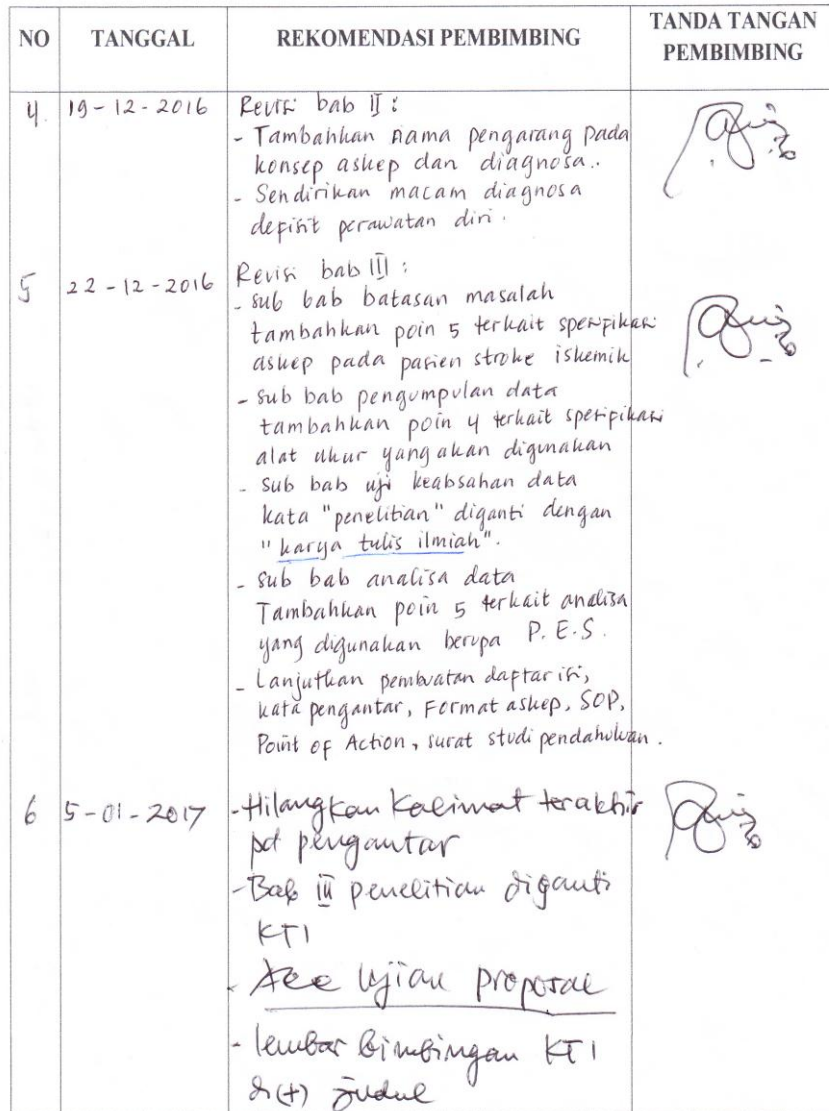 NO TANGGAL REKOMENDASI PEMBIMBING TANDA TANGAN PEMBIMBING
4. 19-12-2016 Revisi bab II :
- Tambahkan nama pengarang pada
konsep askep dan diagnosa..
- Sendirikan macam diagnosa
defisit perawatan diri.
5 22-12-2016 Revisi bab III :
- sub bab batasan masalah
tambahkan poin 5 terkait spesifikasi
askep pada pasien stroke iskemik
- sub bab pengumpulan data
tambahkan poin 4 terkait spesifikasi
alat ukur yang akan digunakan
- sub bab uji keabsahan data
kata "penelitian" diganti dengan
"karya tulis ilmiah".
- sub bab analisa data
Tambahkan poin 5 terkait analisa
yang digunakan berupa P.E.S.
- Lanjutkan pembuatan daftar isi,
kata pengantar, Format askep, SOP,
Point of Action, surat studi pendahuluan.
6 5-01-2017 - Hilangkan kalimat terakhir
pd pengantar
- Bab III penelitian diganti
KTI
- Acc Ujian proposal
- lembar bimbingan KTI
di(+) judul